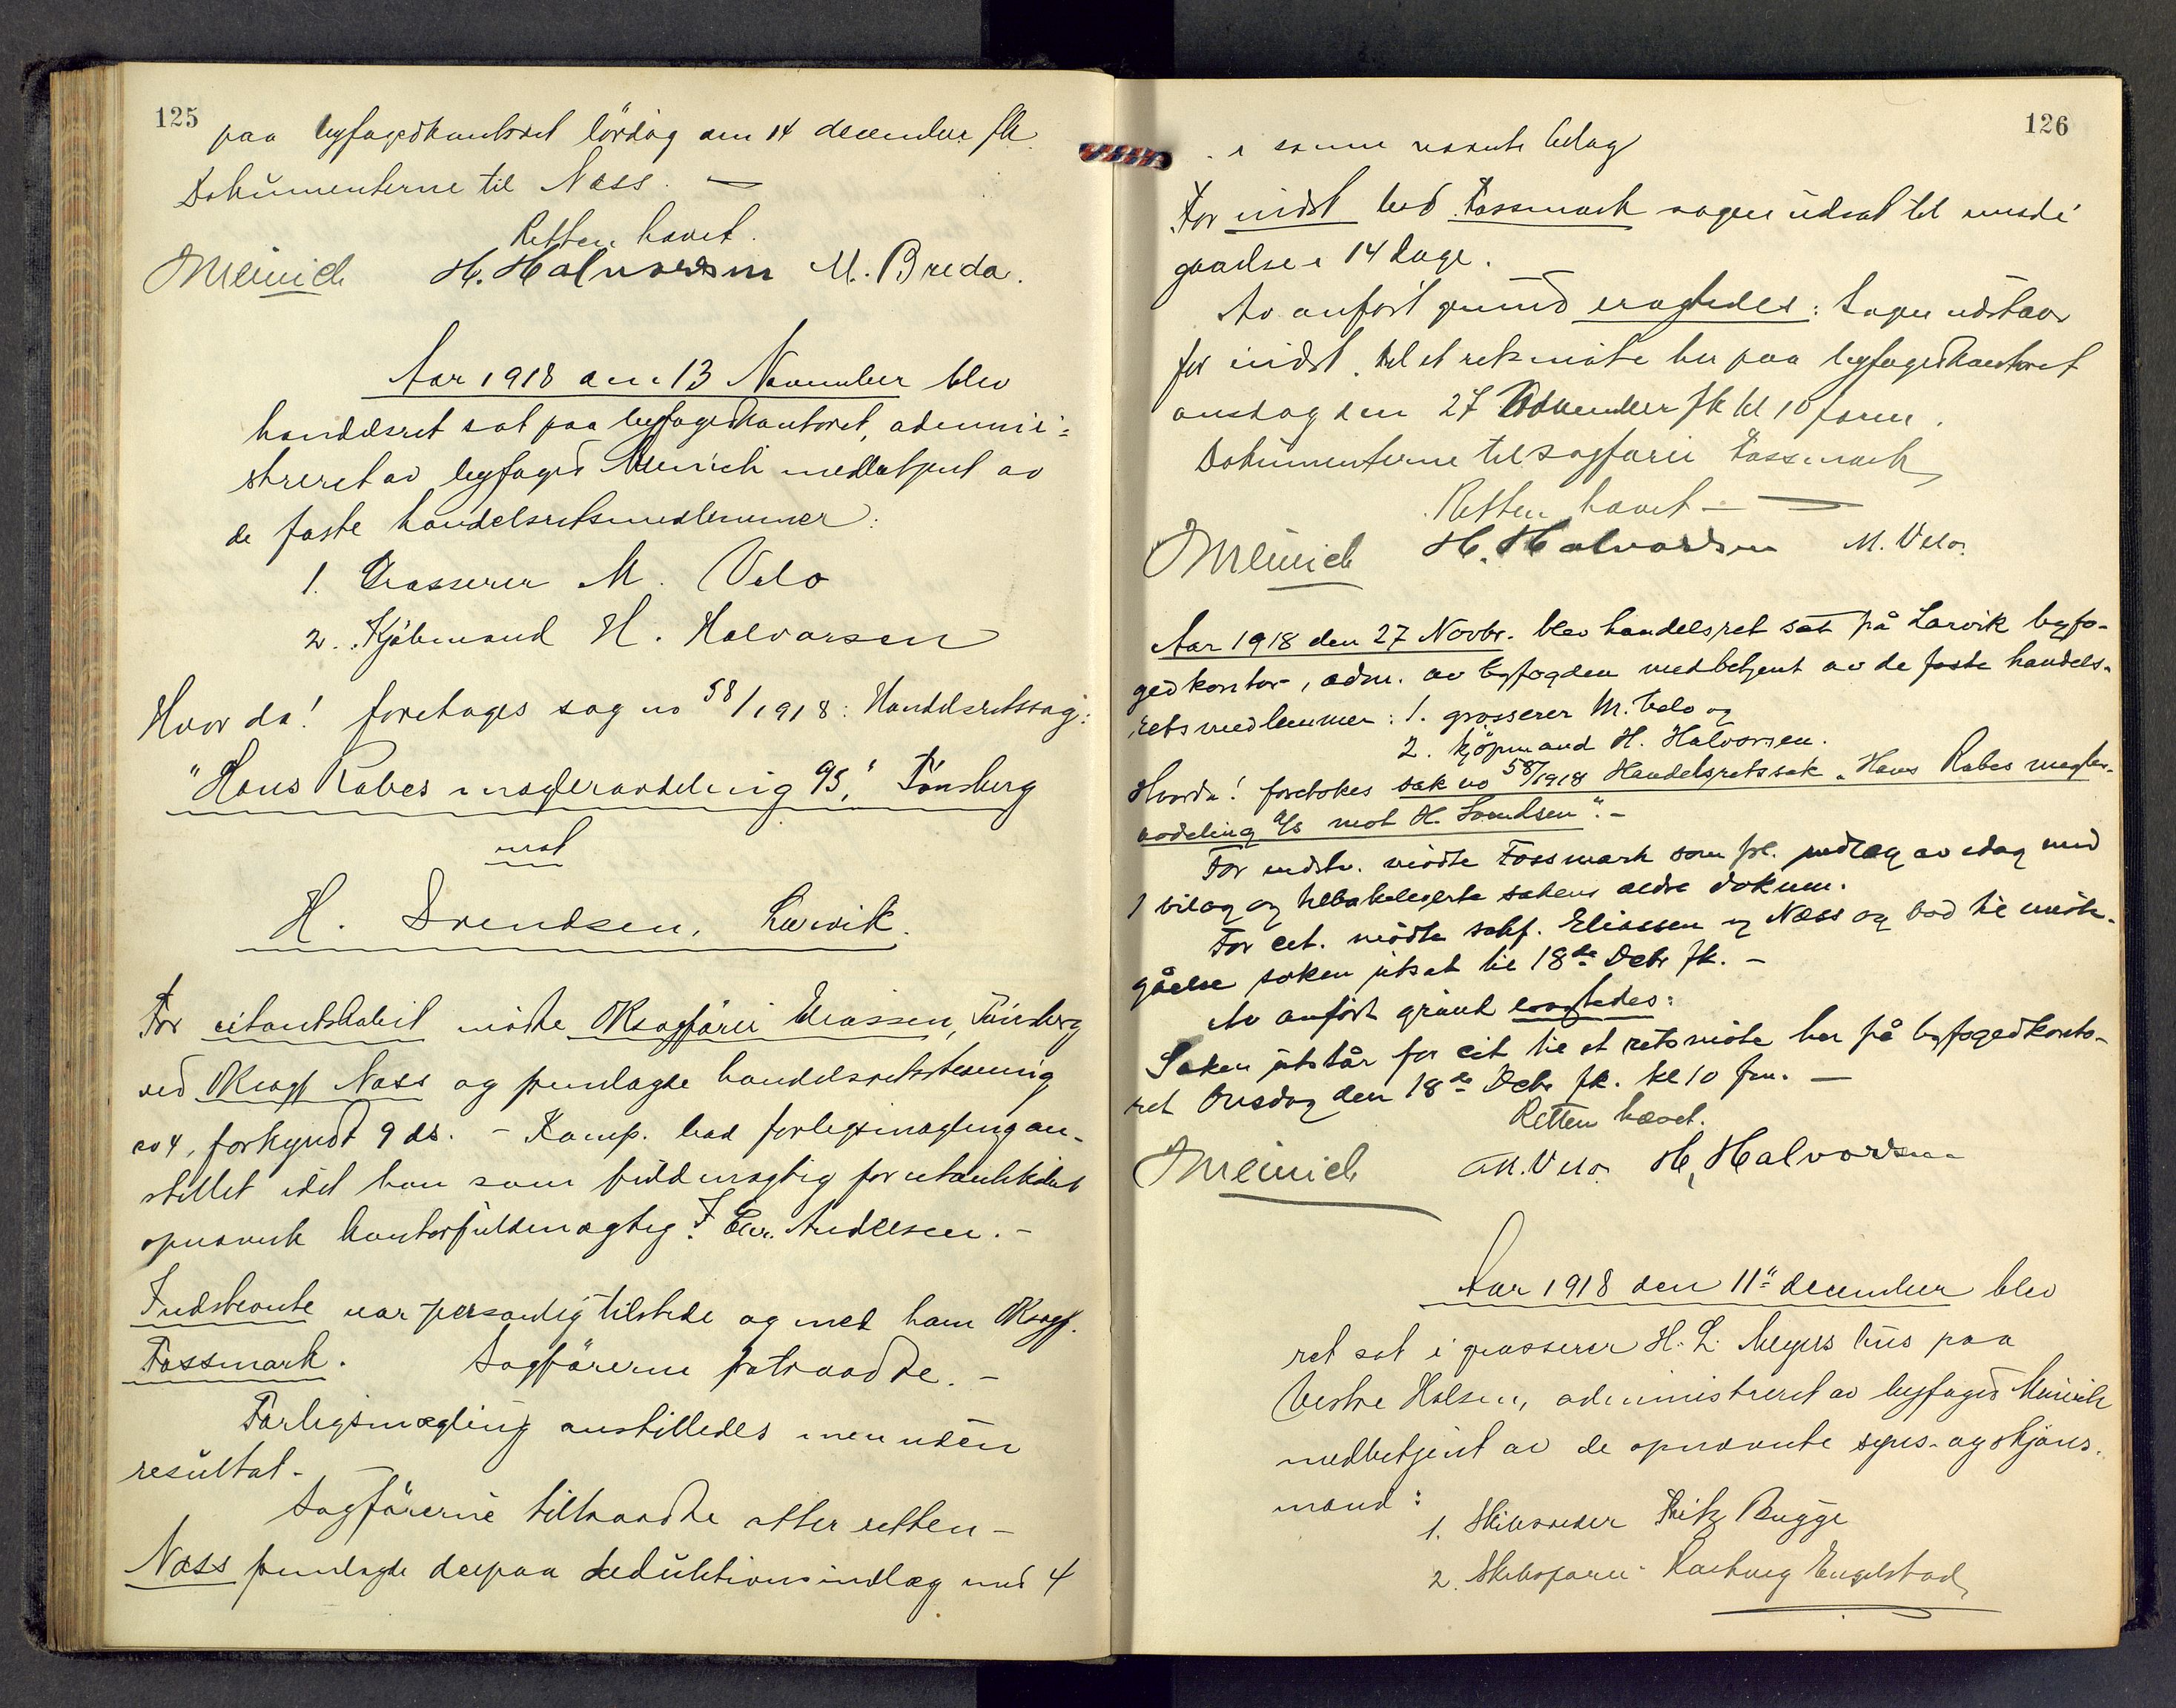 125
paa byfogedkontoret lördag den 14 december fk.
Dokumenterne til Næss. —
Retten hævet.
Meinich H. Halvorsen M. Breda.
Aar 1918 den 13 November blev
handelsret sat paa byfogedkontoret, admini=
streret av byfoged Meinich medbetjent av
de faste handelsretsmedlemmer:
1. Grosserer M. Velo
2. Kjöbmand H. Halvorsen
Hvorda! foretages sag no 58/1918: Handelsretssag:
"Hans Rabes mægleravdeling A/S", Tönsberg
mot
H. Svendsen, Larvik.
For citantskabet mödte ORsagförer Eliassen, Tönsberg
ved ORsagf Næss og fremlagde handelsretsstevning
no 4, forkyndt 9 ds. - Komp. bad forligsmægling an-
stillet idet han som fuldmægtig for citantskabet
opnævnte kontorfuldmægtig F. Chr. Andersen. -
Indstevnte var personlig tilstede og med ham ORsagf.
Fossmark. Sagförerne fratraadte. -
Forligsmægling anstilledes men uden
resultat. -
Sagförerne tiltraadte atter retten -
Næss fremlagde derpaa deduktionsindlæg med 4
126
i samme nævnte bilag
For indst bad Fossmark sagen udsat til imöde
gaaelse i 14 dage.
Av anfört grund eragtedes: Sagen udstaar
for indst. til et retsmöte her paa byfogedkontoret
onsdag den 27 November fk kl 10 form.
Dokumenterne til sagförer Fossmark
Retten hævet - —
Meinich H. Halvorsen M. Velo.
Aar 1918 den 27 Novbr. blev handelsret sat på Larvik byfo-
gedkontor, adm. av byfogden medbetjent av de faste handels-
retsmedlemmer: 1. grosserer M. Velo og
2. kjöpmand H. Halvorsen.
Hvorda! foretokes sak no 58/1918 Handelsretssak "Hans Rabes mægler-
avdeling A/S mot H. Svendsen". -
For indstv. mödte Fossmark som frl. indlæg av idag med
1 bilag og tilbakeleverte sakens ældre dokum.
For cit. mödte sakf. Eliassen og Næss og bad til imöte-
gåelse saken utsat til 18de Debr fk. -
Av anfört grund eragtedes:
Saken utstår for cit til et retsmöte her på byfogedkonto-
ret Onsdag den 18de Debr fk. kl 10 fm. —
Retten hævet.
Meinich M. Velo. H. Halvorsen
Aar 1918 den 11te december blev
ret sat i grosserer H. L. Meyers hus paa
Vestre Halsen, administreret av byfoged Meinich
medbetjent av de opnævnte syns- og skjöns-
mænd:
1. Skibsreder Fritz Bugge
2. Skibsförer Engelstad